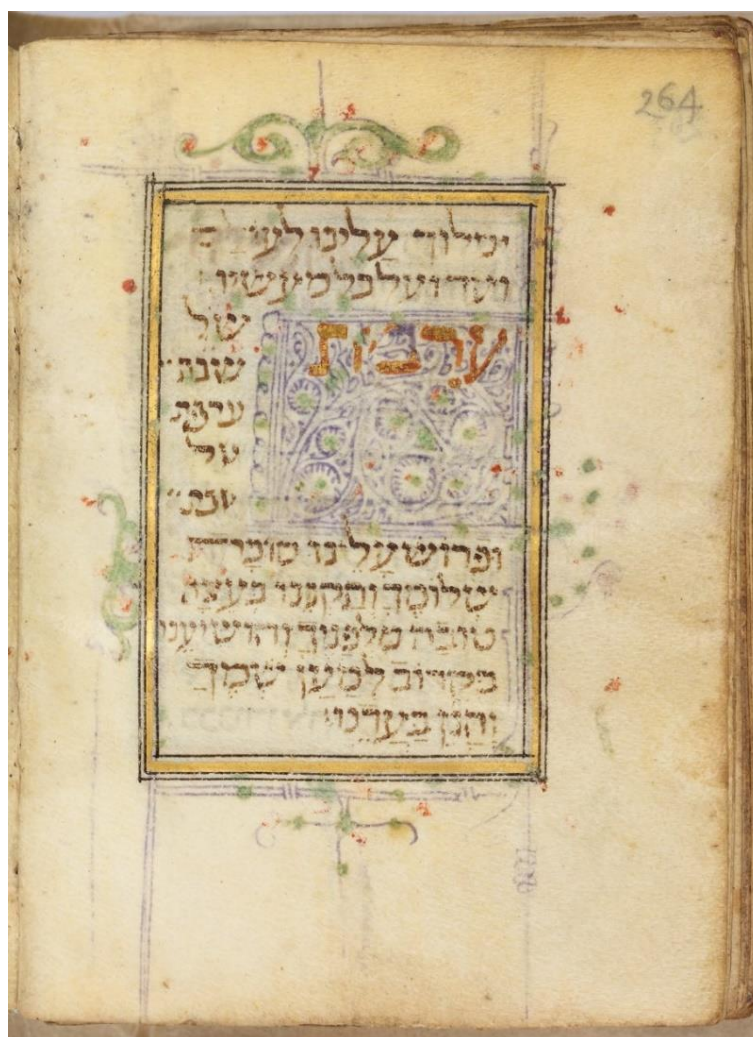 264
ימלוך עָלֵינוּ לעולם
ועד ועל כל מעשיו
עַרְבִית
של
שבת
ערבית
של
שבת
ופרוש עָלֵינוּ סוכַּת
שלומֶךָ ותקננו בעצה
טובה מלפניך והושיענו
בקרוב לְמַעַן שְמֶךָ
וְהָגֵן בַּעֲדֵנוּ